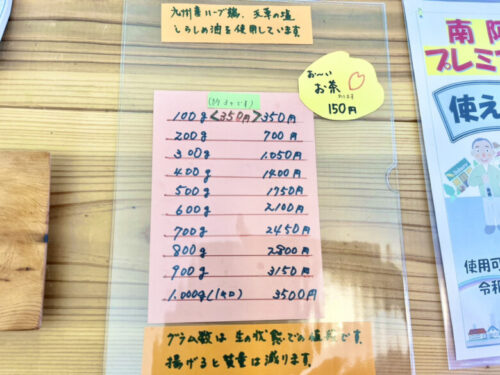 九州産ハーブ鶏、天草の塩
しらしめ油を使用しています。
お〜いお茶
あります
150円
100g <350円> 350円
200g 700円
300g 1.050円
400g 1400円
500g 1750円
600g 2.100円
700g 2450円
800g 2800円
900g 3150円
1.000g(1キロ) 3500円
グラム数は生の状態での値段です。
揚げると質量は減ります。
南阿
プレミア
使え
使用可
令和